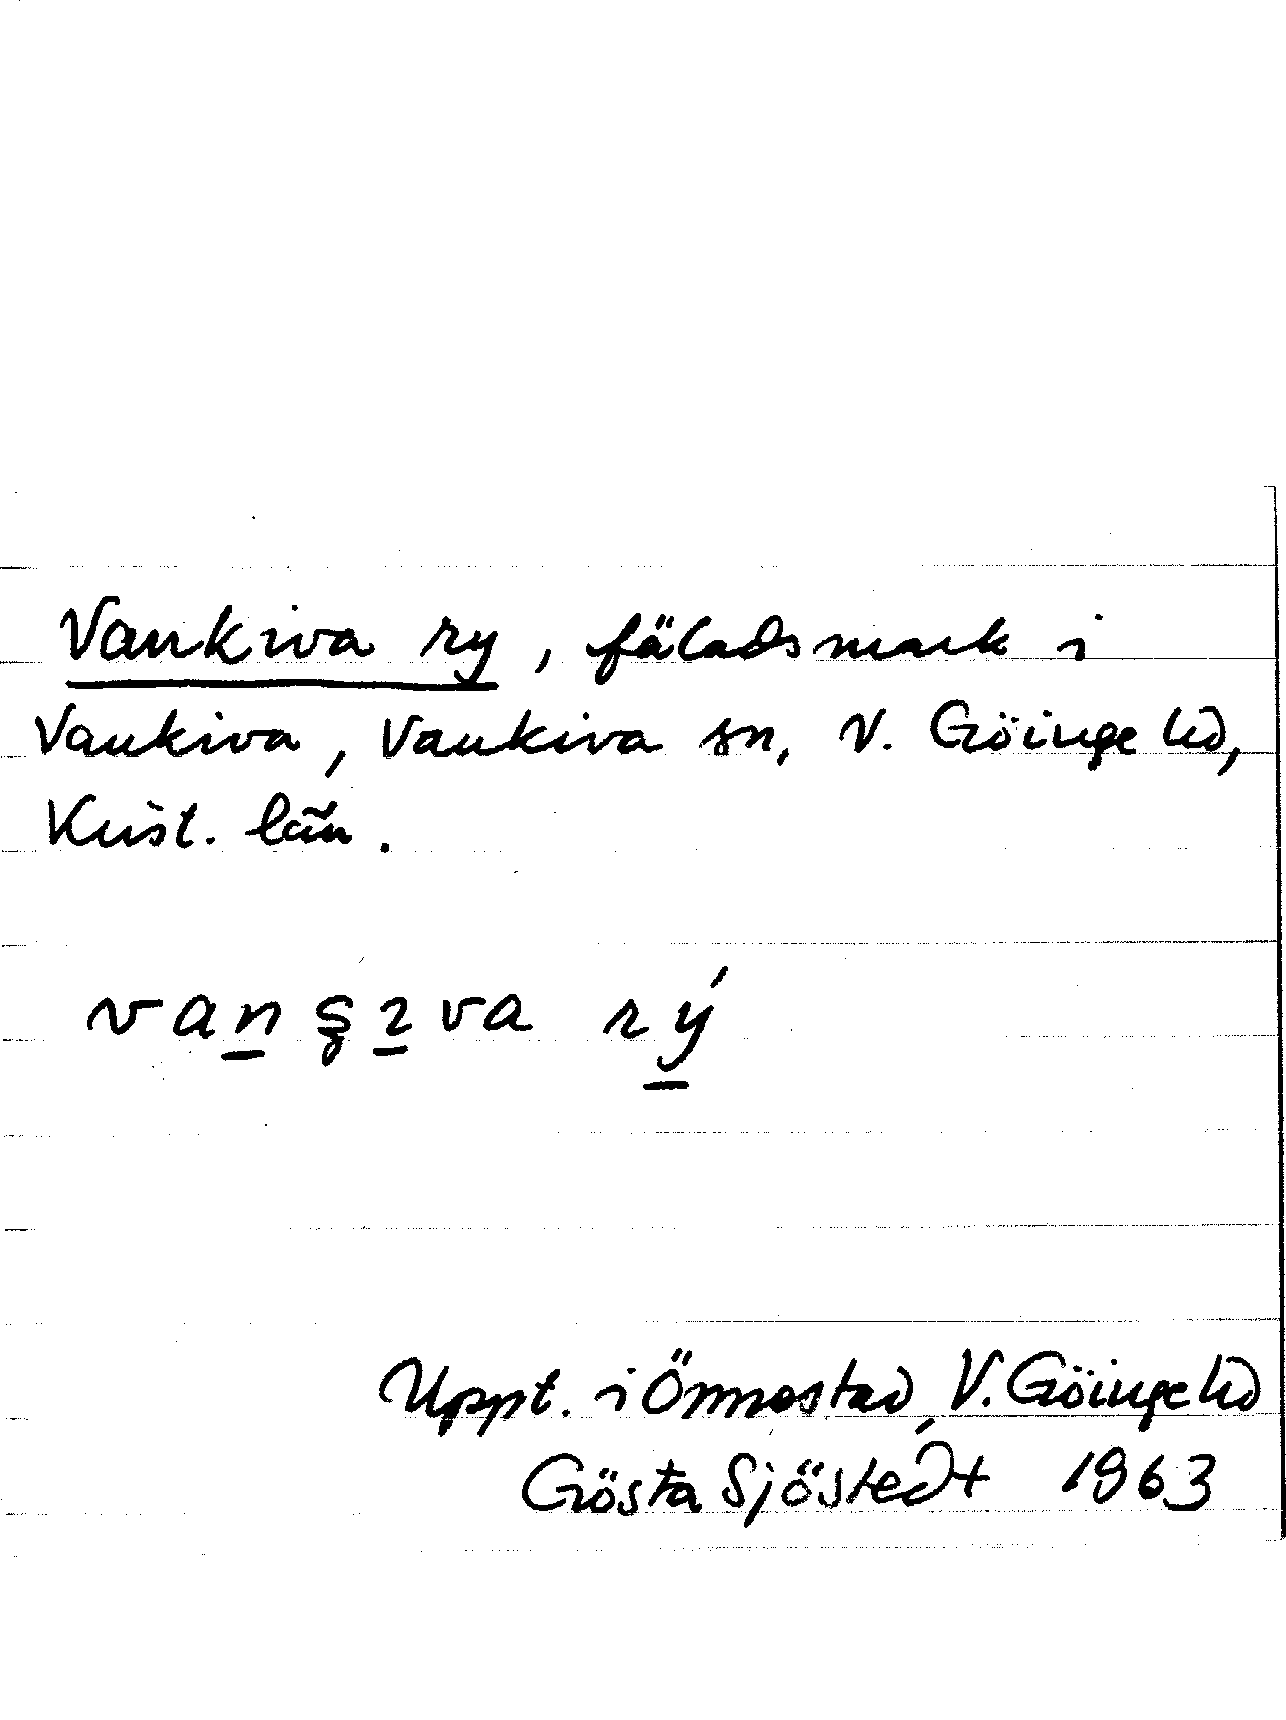 Vankiva ry, fäladsmark i
Vankiva, Vankiva sn, V. Göinge hd,
Krist. län.
ry
Uppt. i Önnestad, V. Göinge hd
Gösta Sjöstedt 1963